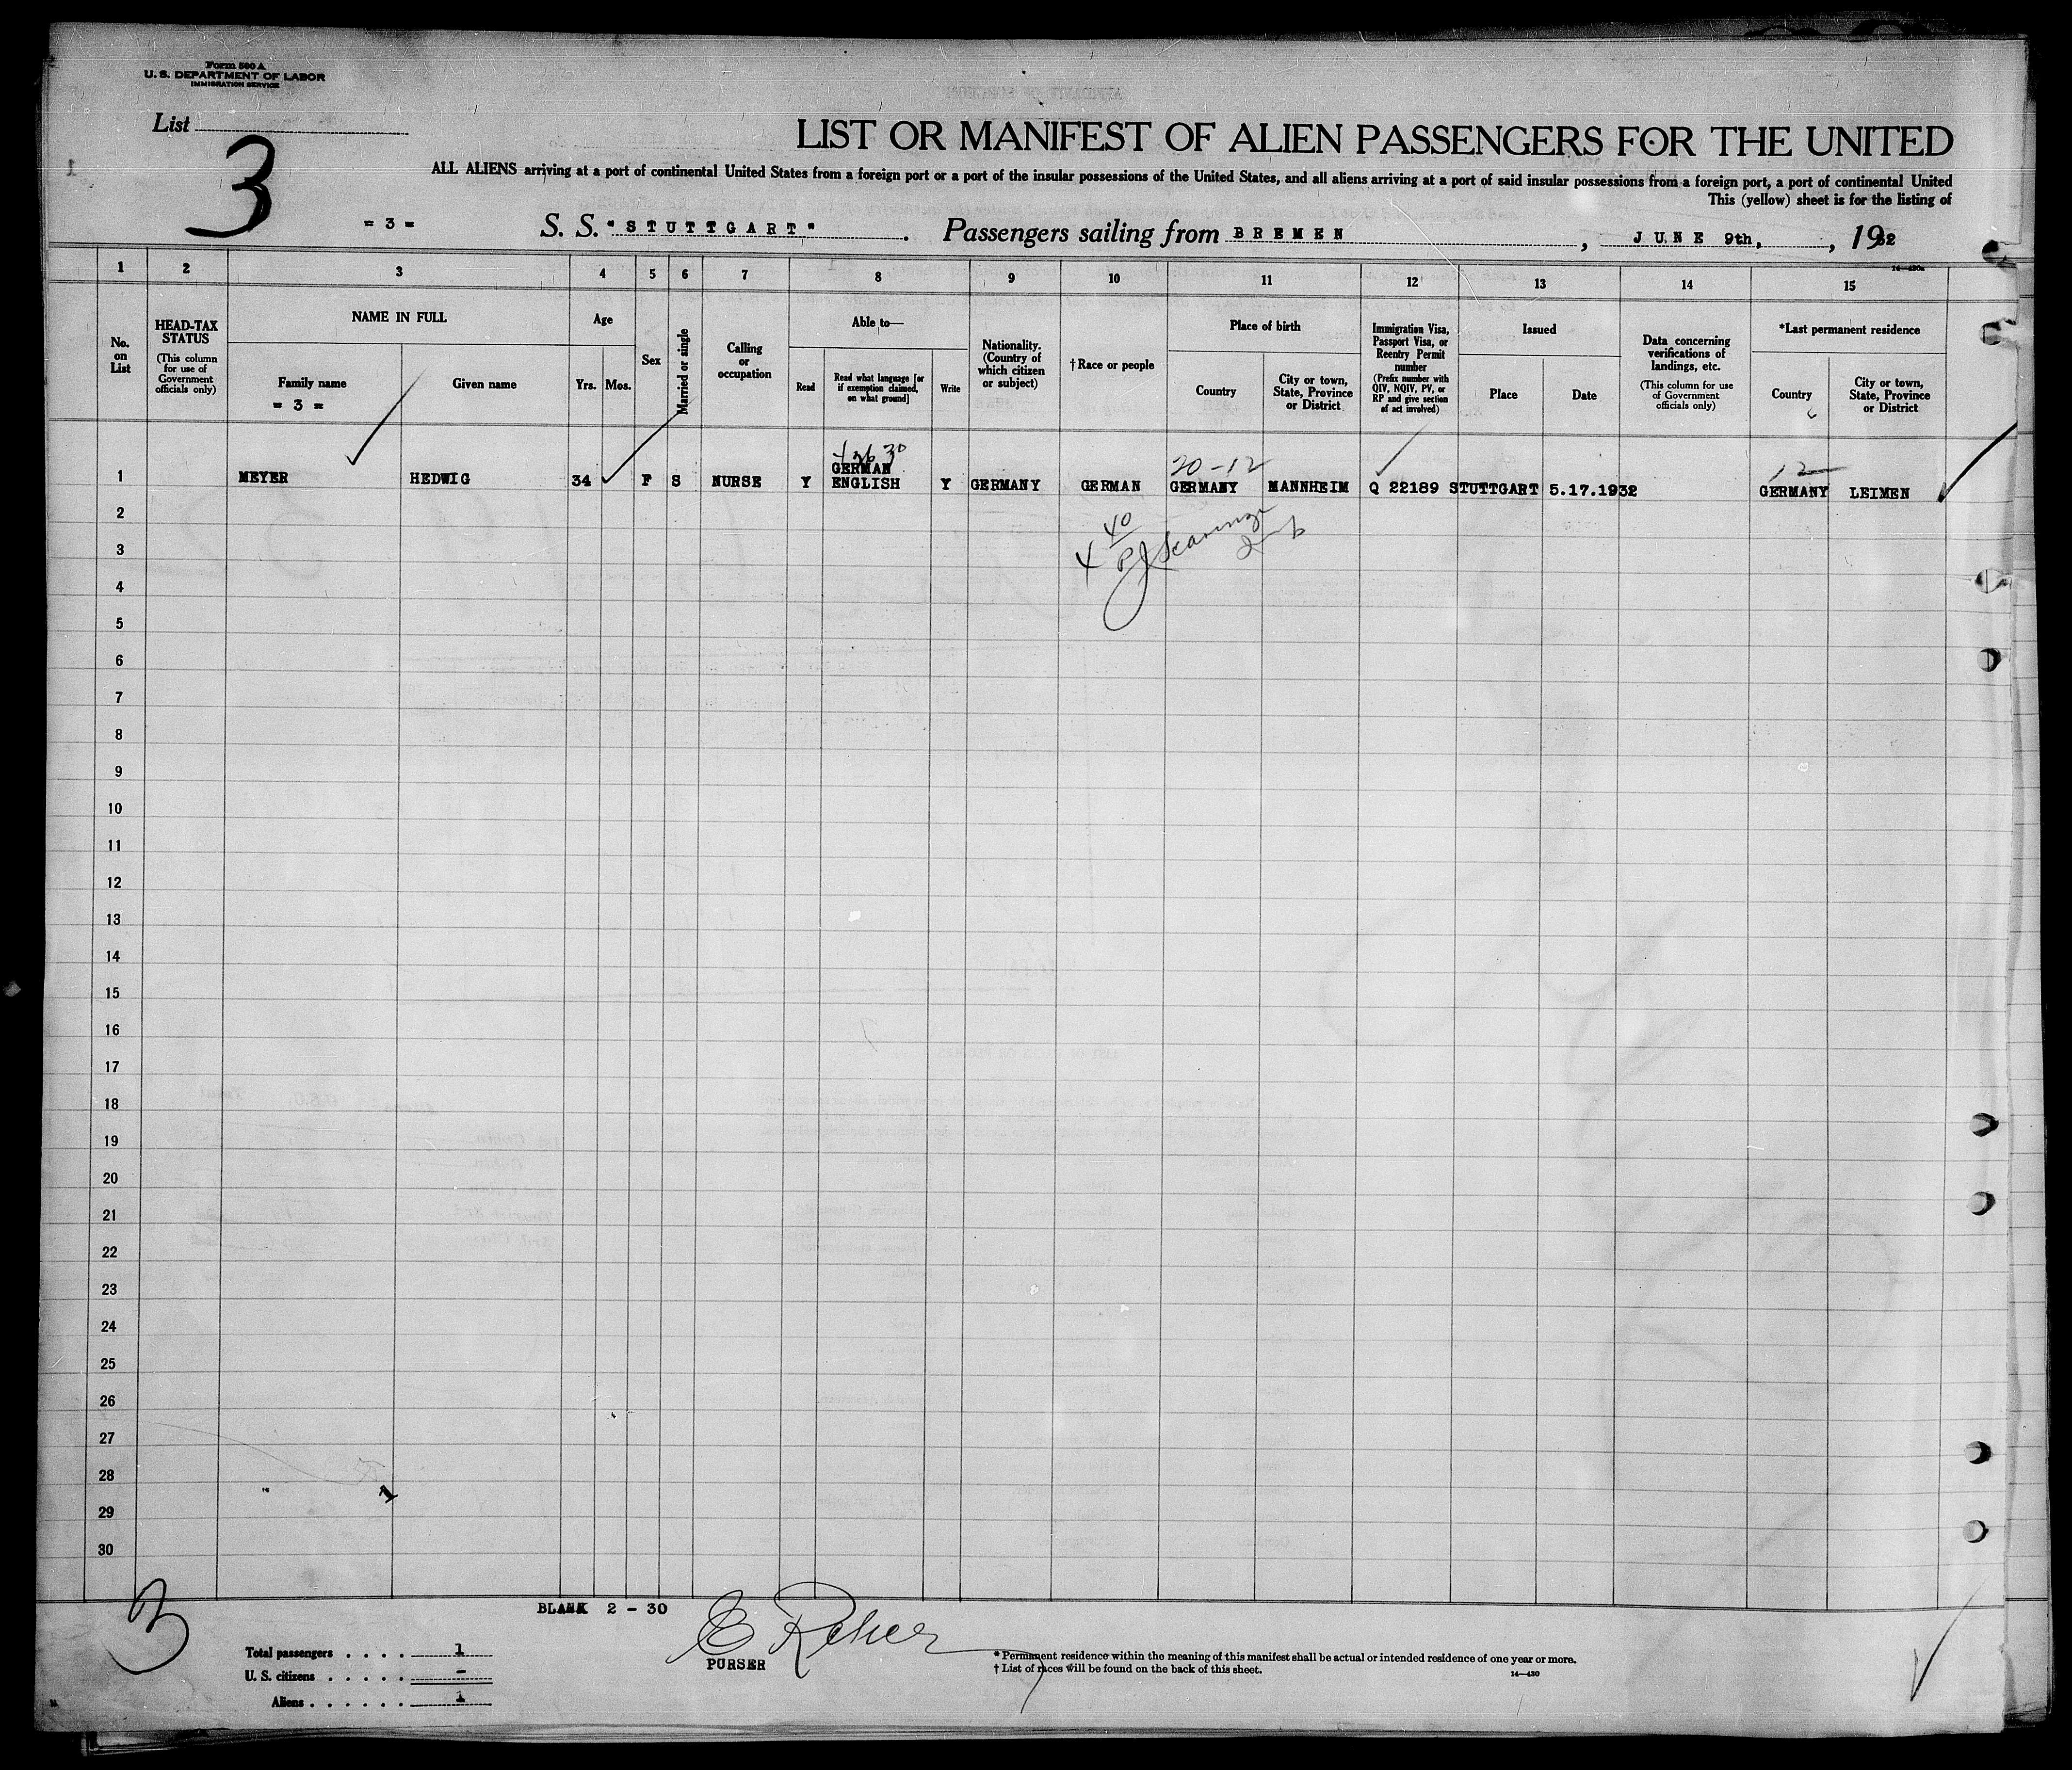 Form 500 A
U. S. DEPARTMENT OF LABOR
IMMIGRATION SERVICE
List
3
LIST OR MANIFEST OF ALIEN PASSENGERS FOR THE UNITED
ALL ALIENS arriving at a port of continental United States from a foreign port or a port of the insular possessions of the United States, and all aliens arriving at a port of said insular possessions from a foreign port, a port of continental United
This (yellow) sheet is for the listing of
= 3 = S. S. "STUTTGART". Passengers sailing from BREMEN, JUNE 9th, , 1932
14—430a
1 2 3 4 5 6 7 8 9 10 11 12 13 14 15
No. on List
HEAD-TAX STATUS
(This column for use of Government officials only)
NAME IN FULL
Family name
= 3 =
Given name
Age
Yrs. Mos.
Sex
Married or single
Calling or occupation
Able to—
Read
Read what language [or if exemption claimed, on what ground]
Write
Nationality. (Country of which citizen or subject)
† Race or people
Place of birth
Country
City or town, State, Province or District
Immigration Visa, Passport Visa, or Reentry Permit number
(Prefix number with QIV, NQIV, PV, or RP and give section of act involved)
Issued
Place
Date
Data concerning verifications of landings, etc.
(This column for use of Government officials only)
*Last permanent residence
Country
City or town, State, Province or District
20-12
12
1 MEYER HEDWIG 34 F S NURSE Y GERMAN ENGLISH Y GERMANY GERMAN GERMANY MANNHEIM Q 22189 STUTTGART 5.17.1932 GERMANY LEIMEN
2
40
3
4
5
6
7
8
9
10
11
12
13
14
15
16
17
18
19
20
21
22
23
24
25
26
27
28
29
30
3
BLANK 2 - 30
PURSER
Total passengers . . . . 1
U. S. citizens . . . . . -
Aliens . . . . . . 1
* Permanent residence within the meaning of this manifest shall be actual or intended residence of one year or more.
† List of races will be found on the back of this sheet.
14—430